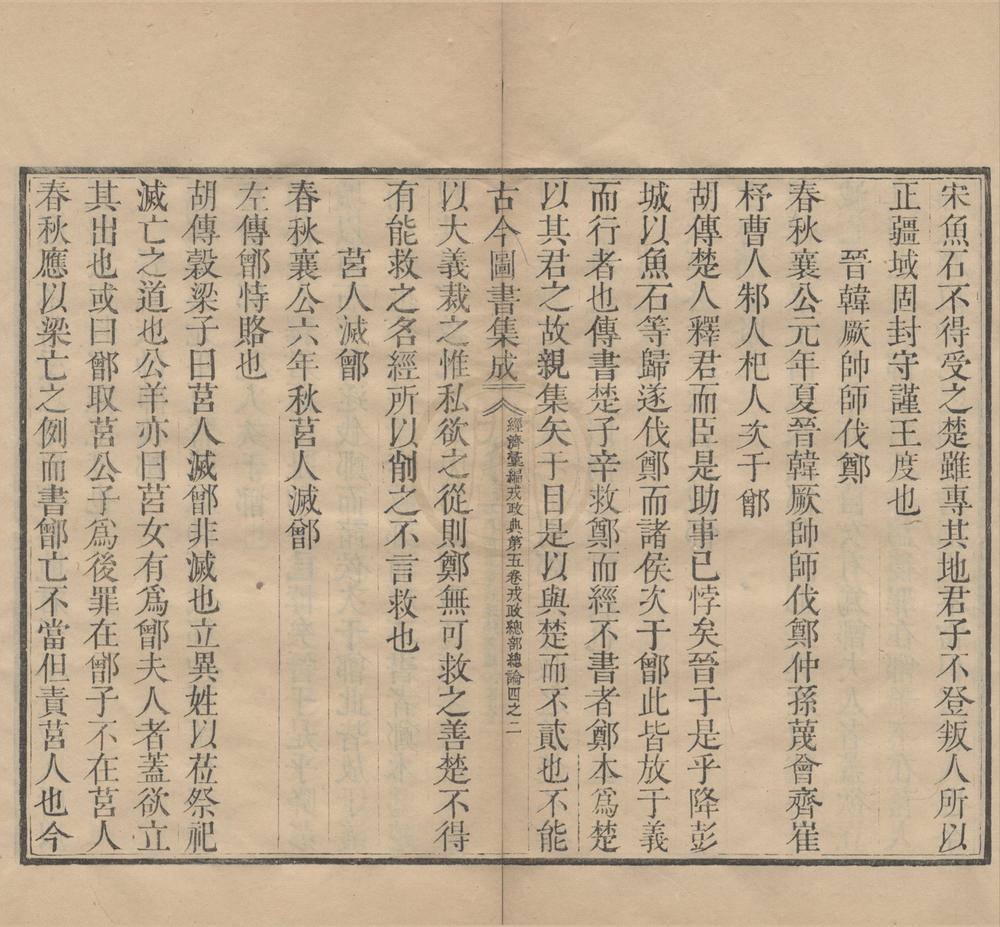 宋魚石不得受之楚雖專其地君子不登叛人所以
正疆域固封守謹王度也
晉韓厥帥師伐鄭
春秋襄公元年夏晉韓厥帥師伐鄭仲孫蔑會齊崔
杼曹人邾人杞人次于鄫
胡傳楚人釋君而臣是助事已悖矣晉于是乎降彭
城以魚石等歸遂伐鄭而諸侯次于鄫此皆放于義
而行者也傳書楚子辛救鄭而經不書者鄭本爲楚
以其君之故親集矢于目是以與楚而不貳也不能
古今圖書集成 經濟彙編戎政典第五卷戎政總部總論四之二
以大義裁之惟私欲之從則鄭無可救之善楚不得
有能救之名經所以削之不言救也
莒人滅鄫
春秋襄公六年秋莒人滅鄫
左傳鄫恃賂也
胡傳穀梁子曰莒人滅鄫非滅也立異姓以莅祭祀
滅亡之道也公羊亦曰莒女有爲鄫夫人者蓋欲立
其出也或曰鄫取莒公子爲後罪在鄫子不在莒人
春秋應以梁亡之例而書鄫亡不當但責莒人也今